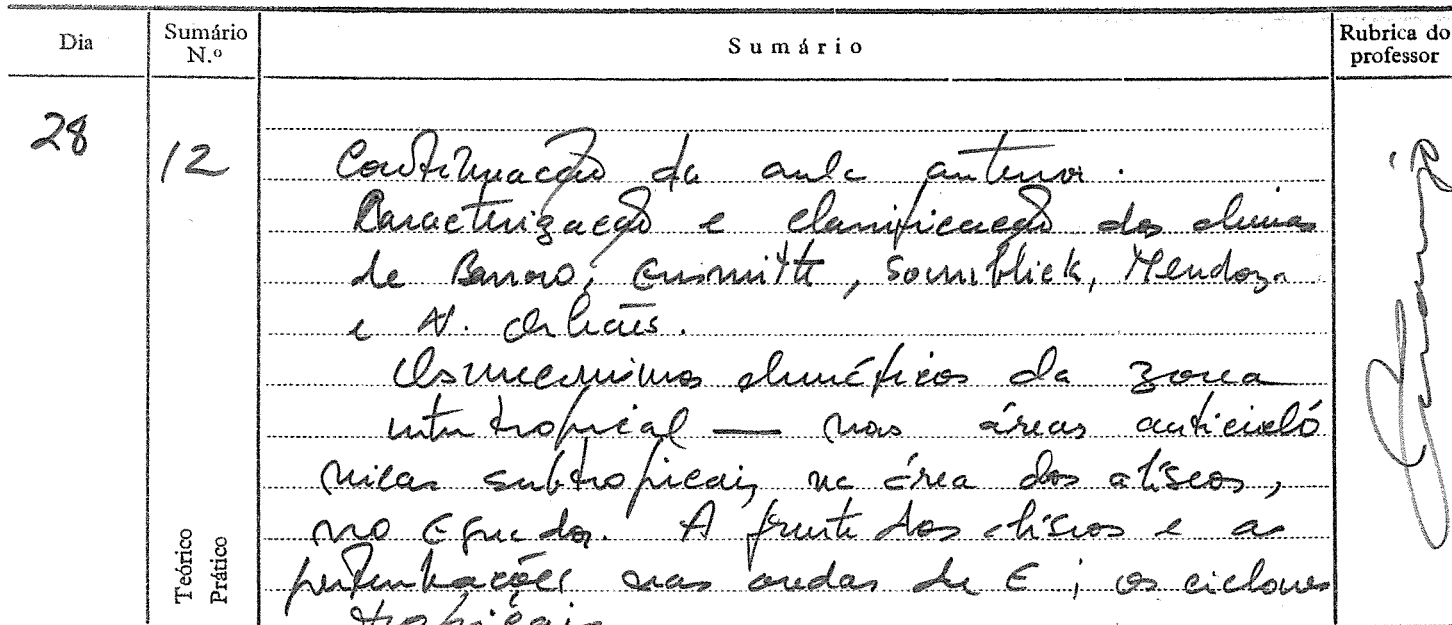 Dia
Sumário N.º
Sumário
Rubrica do professor
28
12
Continuação da aula anterior.
Caracterização e classificação dos climas
de Barrow, , , Mendoza
e N. Orleães.
Os mecanismos climáticos da zona
intertropical — nas áreas anticicló
nicas subtropicais, na área dos alíseos,
no Equador. A frente dos alíseos e as
perturbações nas ondas de E; os ciclones
tropicais
Teórico
Prático